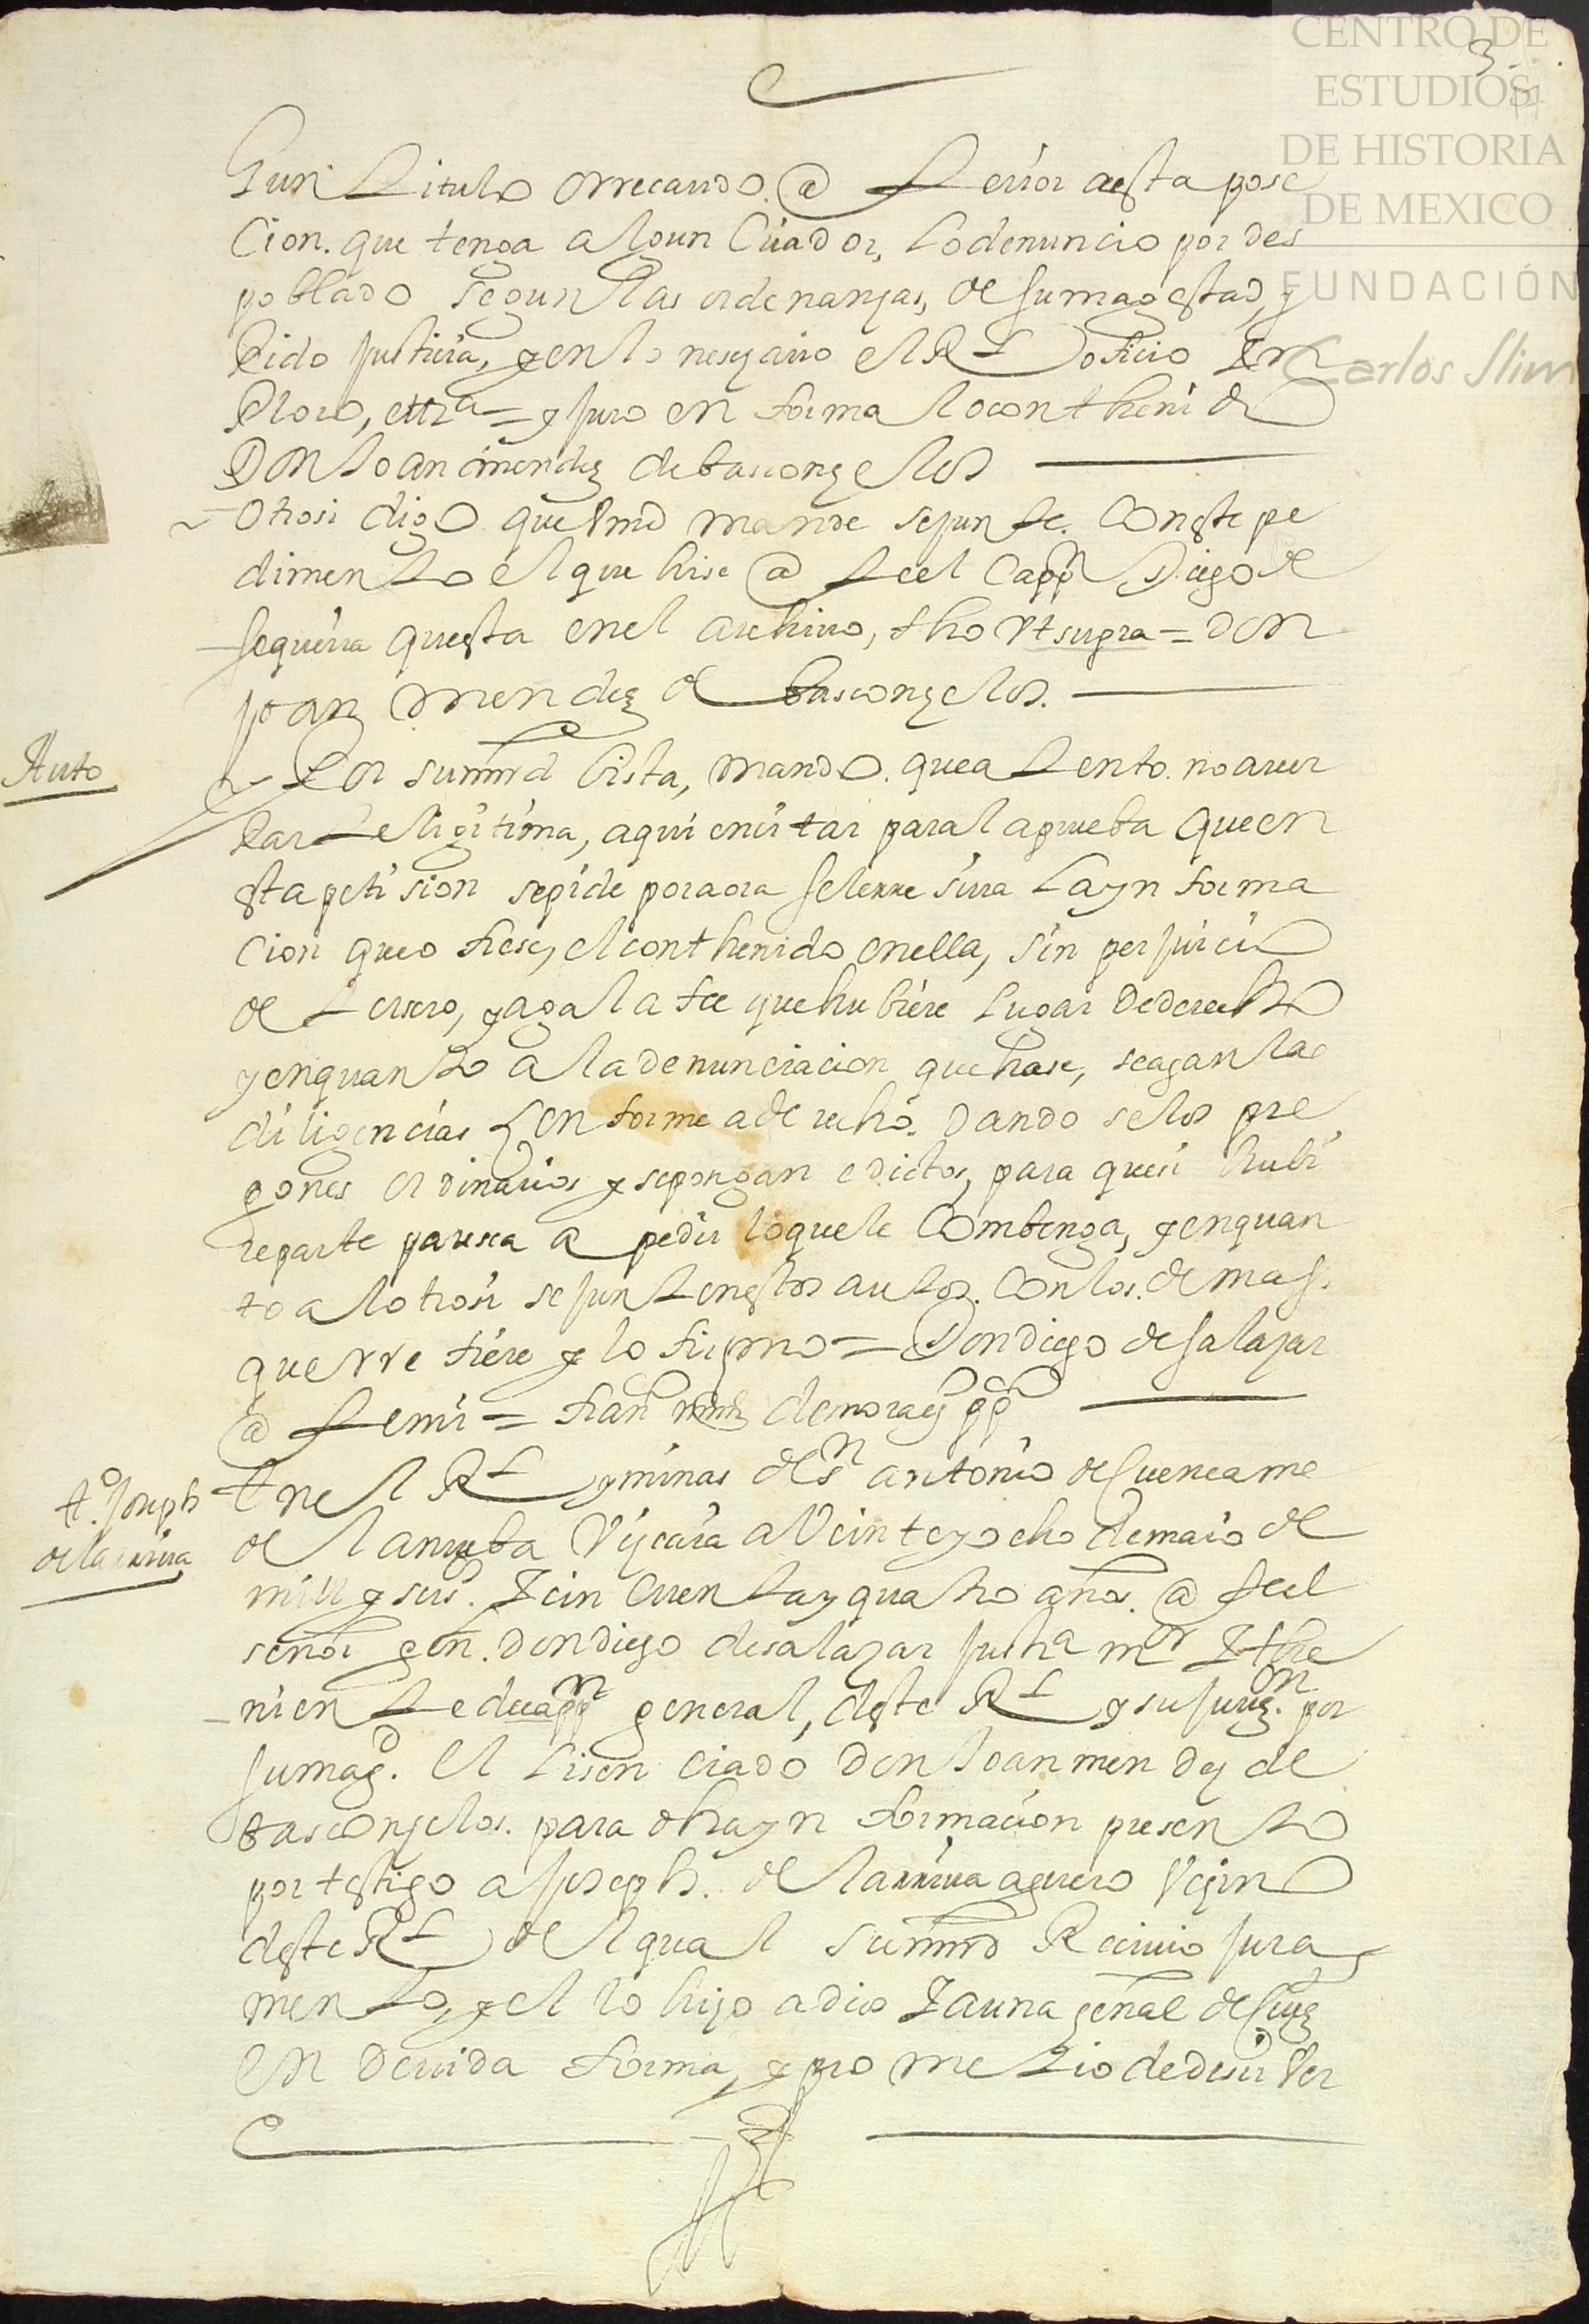 3
CENTRO DE
ESTUDIOS
DE HISTORIA
DE MEXICO
FUNDACIÓN
Carlos Slim
Gun titulo o rrecaudo @ terior aesta pose
cion. que tenga algun Criador, lo denuncio por des
poblado segun las ordenanças, de su magestad, y
Pido justicia, y en lo nesçario el Rl oficio Ym
Ploro, ettra = y juro en forma lo conthenido
Don Joan mendez de basconçelos
Otrosi digo que Vmd mande se junte. Con este pe
dimento el que hise @ te el Cappn Diego de
sequeira questa en el archivo, fho Vt supra = don
Joan mendez de basconçelos.
Auto
Por su mrd Vista, mando. que atento. no aver
Parte ligitima, aqui en citar para la prueba que en
esta petision se pide por aora se le rreseiva la ynforma
cion que ofrese, el conthenido en ella, sin perjuicio
de tersero, y aga la fee que hubiere lugar de derecho
y en quanto a la denunciacion que hase, se agan las
diligencias Conforme a derecho. dando se los pre
gones ordinarios y se pongan edictos, para que si hubi
re parte paresca a pedir lo que le Combenga, y en quan
to a lotrosi se junten estos autos. Con los. demas.
que rrefiere y lo firmo = Don diego de salaçar
@ te mi = fran demoraez pp
to. Joseph
de la rriva
En el Rl y minas de sn antonio de Cuencame
de la nueba Viscaia a Veinte y ocho de maio de
mill y seis. Y cin cuenta y quatro anos. @ te el
senor gen. don diego de salaçar justa mr Y the
niente de cappn general, deste Rl y su jurizon. por
su magd. el lisenciado don Joan mendez de
basconçelos. para dha ynformacion presento
por testigo a Joseph. de la rriva aguero Veçino
deste Rl del qual su mrd Recivio jura
mento, y el lo hiço a dios Y a una señal de Cruz
en devida forma, y prometio de desir Ver